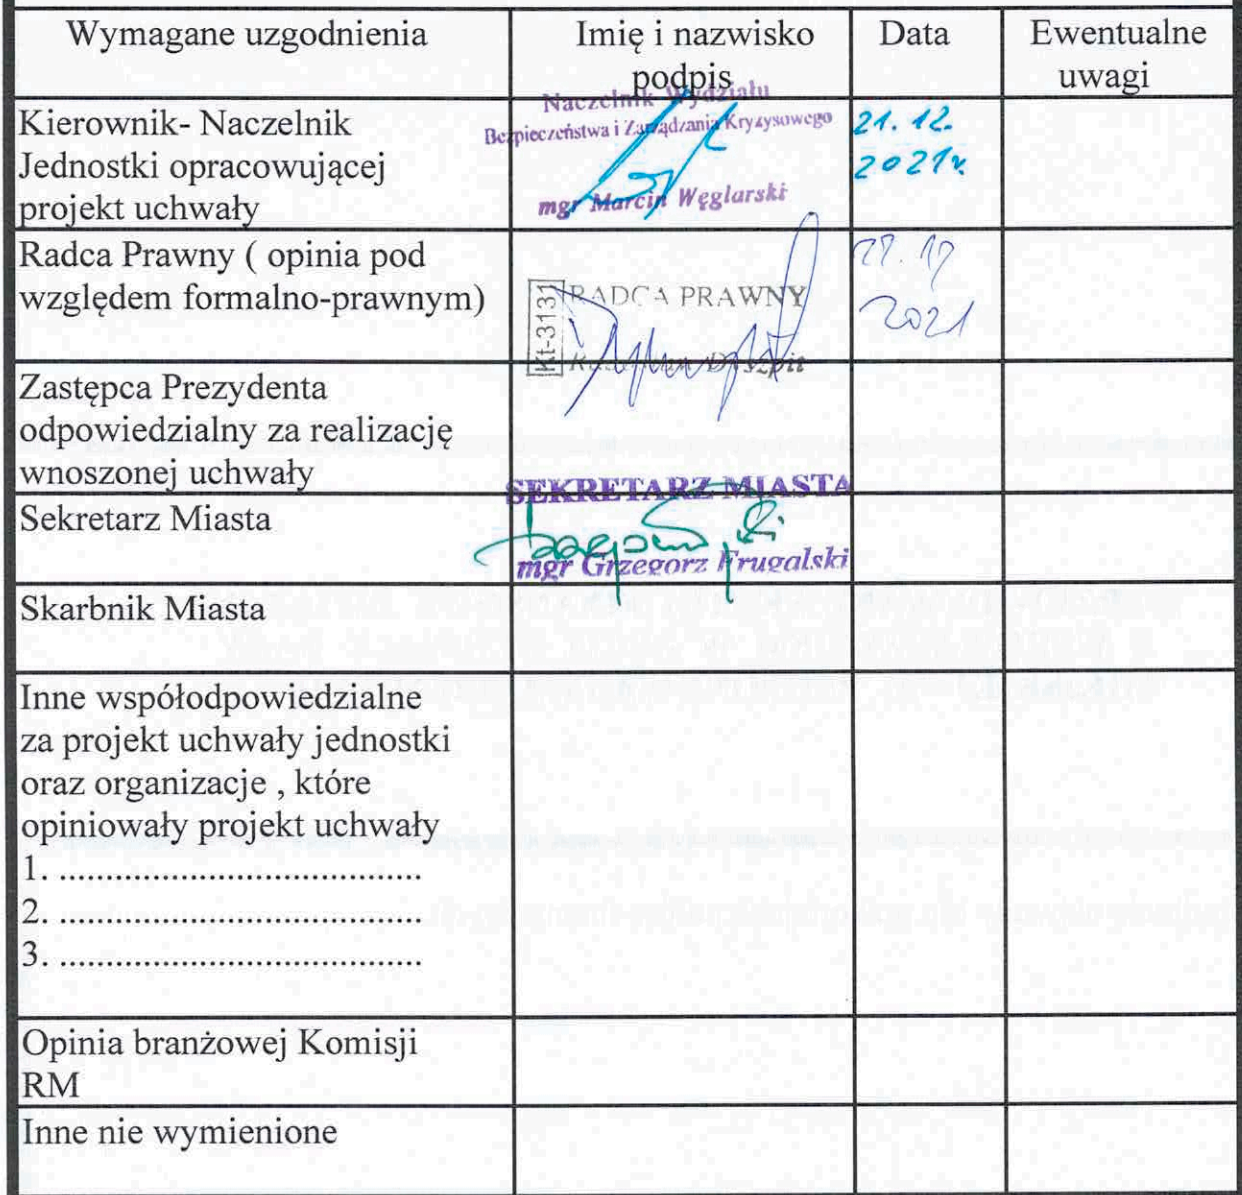 Wymagane uzgodnienia
Imię i nazwisko
podpis
Data
Ewentualne
uwagi
Kierownik- Naczelnik
Jednostki opracowującej
projekt uchwały
Naczelnik Wydziału
Bezpieczeństwa i Zarządzania Kryzysowego
mgr Marcin Węglarski
21.12.
2021r.
Radca Prawny ( opinia pod
względem formalno-prawnym)
Kt-3131
RADCA PRAWNY
2021
Zastępca Prezydenta
odpowiedzialny za realizację
wnoszonej uchwały
SEKRETARZ MIASTA
Sekretarz Miasta
mgr Grzegorz Frugalski
Skarbnik Miasta
Inne współodpowiedzialne
za projekt uchwały jednostki
oraz organizacje , które
opiniowały projekt uchwały
1. .......................................
2. .......................................
3. .......................................
Opinia branżowej Komisji
RM
Inne nie wymienione